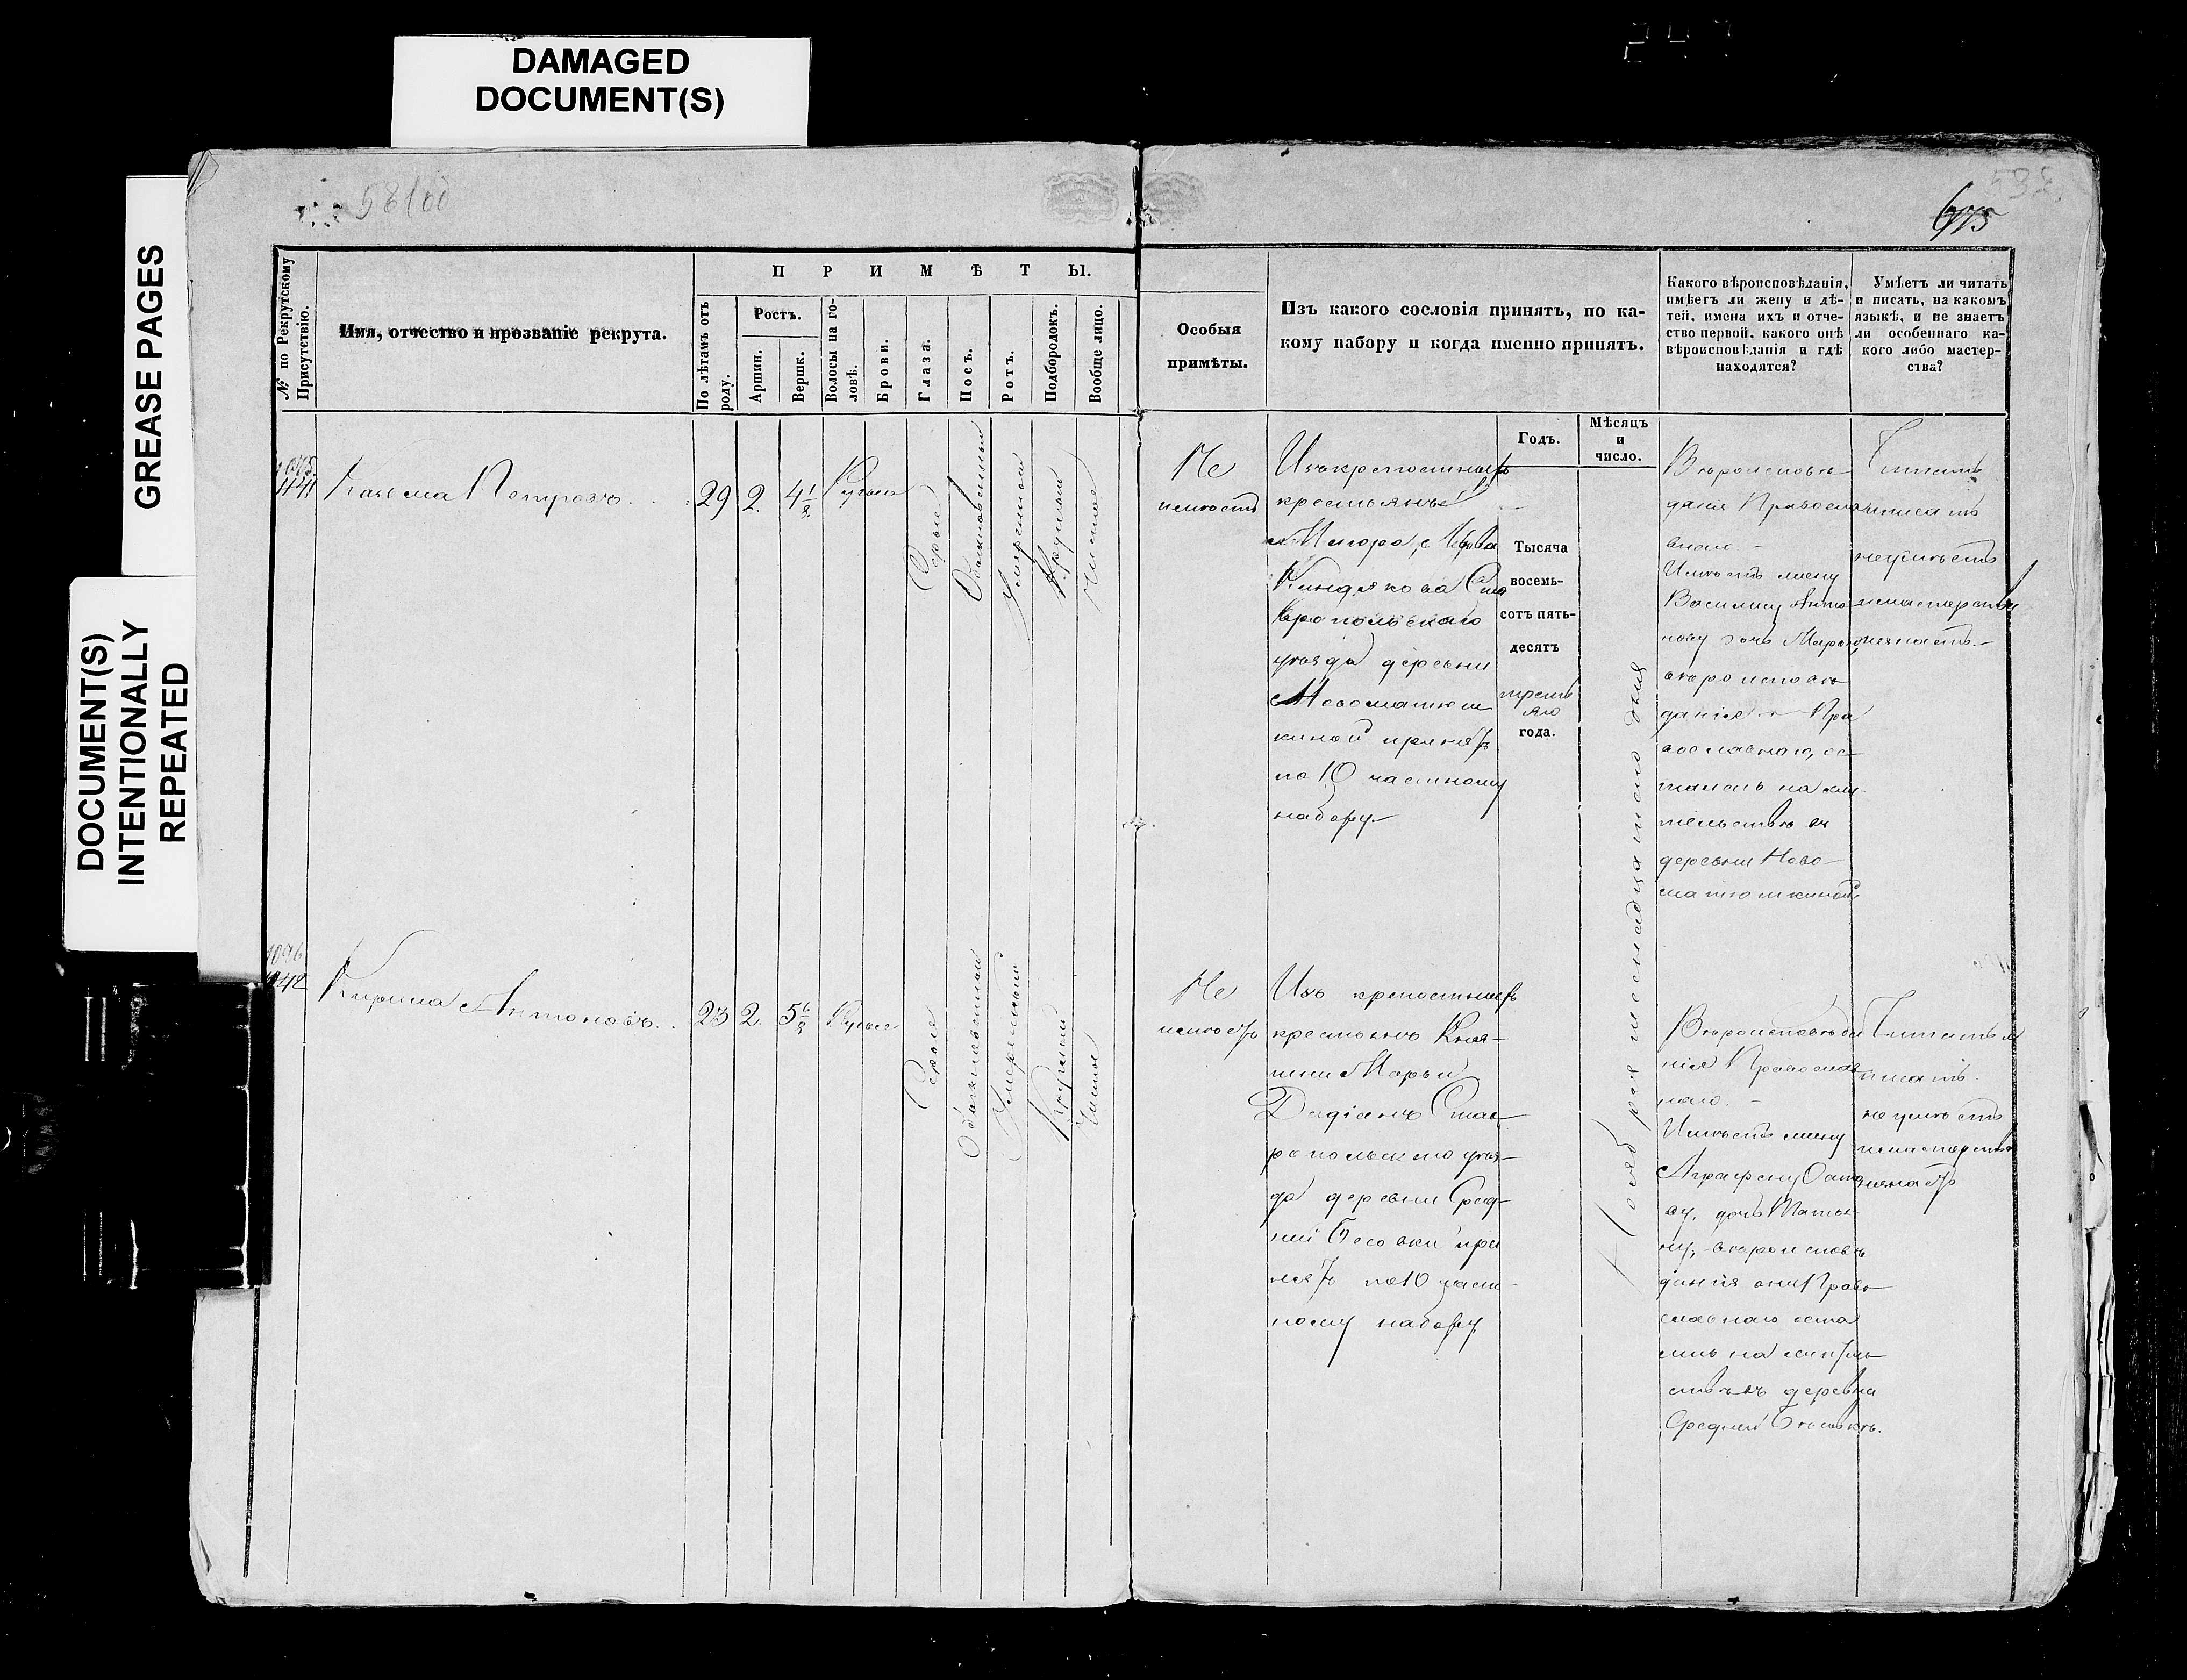 DAMAGED
DOCUMENT(S)
GREASE PAGES
DOCUMENT(S)
INTENTIONALLY
REPEATED
58100
675
№ по Рекрутскому
Присутствію.
Имя, отчество и прозваніе рекрута.
ПРИМѢТЫ.
По лѣтамъ отъ
роду.
Ростъ.
Аршин.
Вершк.
Волосы на го-
ловѣ.
Брови.
Глаза.
Носъ.
Ротъ.
Подбородокъ.
Вообще лицо.
Особыя
примѣты.
Изъ какого сословія принятъ, по ка-
кому набору и когда именно принятъ.
Какого вѣроисповѣданія,
имѣетъ ли жену и дѣ-
тей, имена ихъ и отче-
ство первой, какого онѣ
вѣроисповѣданія и гдѣ
находятся?
Умѣетъ ли читать
и писать, на какомъ
языкѣ, и не знаетъ
ли особеннаго ка-
кого либо мастер-
ства?
Годъ.
Мѣсяцъ
и
число.
1141
Казьма Петровъ
29 2. 4 1/8
Русые
Сѣрые
Обыкновенный
Умеренный
Круглый
Чистое
Не
имѣетъ
Изъ крепостныхъ
крестьянъ
Маіора Льва
Киндякова Ста
вропольскаго
уѣзда деревни
Новоматюш
киной принятъ
по 10 частному
набору.
Тысяча
восемь-
сотъ пять-
десятъ
треть
яго
года.
Ноября шеснадцатого дня
Вѣроисповѣ
данія Правосла
внаго
Имѣетъ жену
Василису Анто
нову дочь Марью
вѣроисповѣ
данія Пра
вославнаго, ос
тались на жи
тельствѣ въ
деревни Ново
матюшкиной
Читать
и писать
неумѣетъ
и мастерства
незнаетъ.
1096
1142
Кирила Антоновъ
23 2. 5 6/8
Русые
Серые
Обыкновенный
Умеренный
Круглый
Чистое
Не
имѣетъ
Изъ крепостныхъ
крестьянъ Кня-
гини Марьи
Дадіанъ Став
ропольского уѣз-
да деревни Сред-
ній Бесовки при
нятъ по 10 част-
ному набору
Вѣроисповѣда
нія Православ
наго.
Имѣетъ жену
Аграфену
ву, дочь Татья
ну, вѣроисповѣ
данія они Право
славнаго оста
лись на житель
ствѣ въ деревни
Средней Бесовкѣ.
Читать и
писать
не умѣетъ
и мастерства
незнаетъ